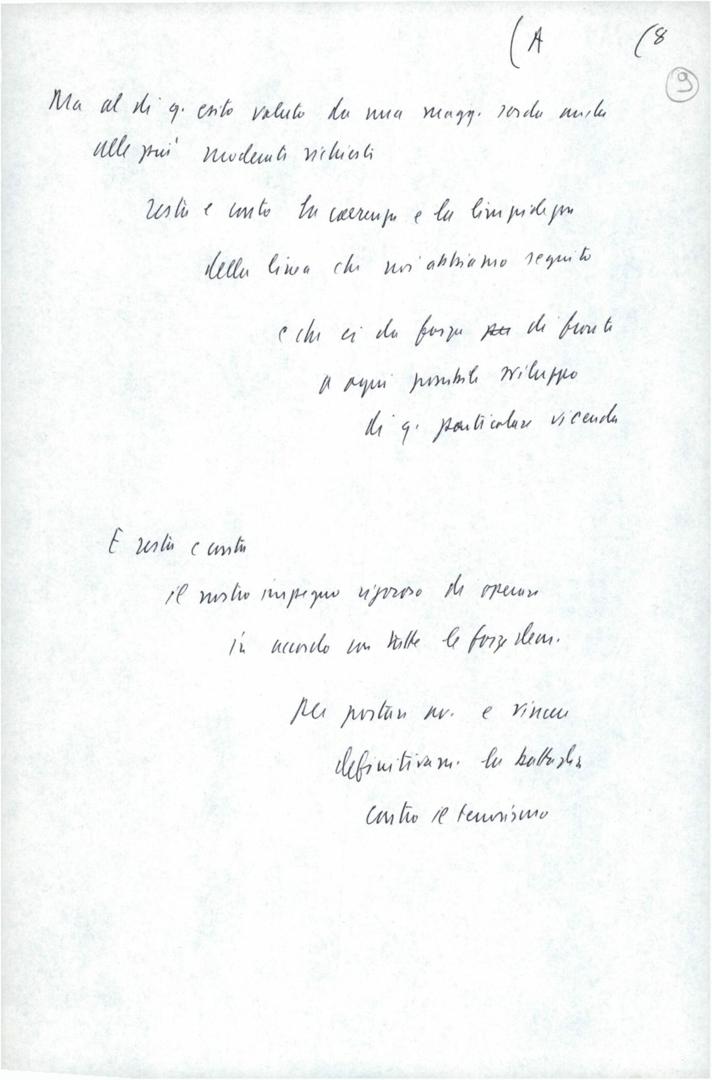 (A (8
9
Ma al di q. esito voluto da una magg. sorda anche
alle più moderate richieste
resta e conta la coerenza e la limpidezza
della linea che noi abbiamo seguito
e che ci da forza per di fronte
a ogni possibile sviluppo
di q. particolare vicenda
E resta e conta
il nostro impegno rigoroso di operare
in accordo con tutte le forze dem.
per portare av. e vincere
definitivam. la battaglia
contro il terrorismo